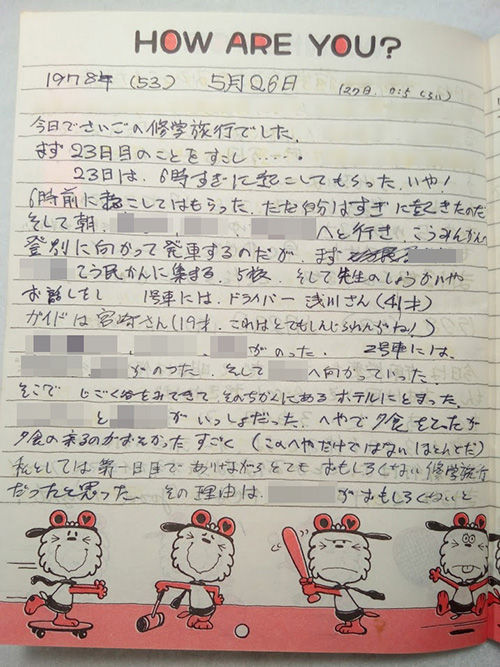 HOW ARE YOU?
1978年 (53) 5月26日 (27日、
今日でさいごの修学旅行でした。
まず23日目のことをすこし・・・・。
23日は、6時すぎに起こしてもらった。いや!
6時前に起こしてはもらった。ただ自分はすぎに起きたのだ
そして朝、 へと行き、こうみんかんへ
登別に向かって発車するのだが、まず
てう民かんに集まる。5校、そして先生のしょうかいや
お話しをし 1号車には、ドライバー 浅川さん(41才)
ガイドは宮崎さん(19才、これはとてもしんじられんがね!)
がのった。 2号車には、
がのった。そして へ向かっていった。
そこで じごく谷をみてきて そのちかくにあるホテルにとまった。
と がいっしょだった。へやで夕食をとったが
夕食の来るのがおそかった すごく (このへやだけではない ほとんどだ)
私としては第一日目で ありながら とても おもしろくない修学旅行
だったと思った。その理由は、 がおもしろくないと